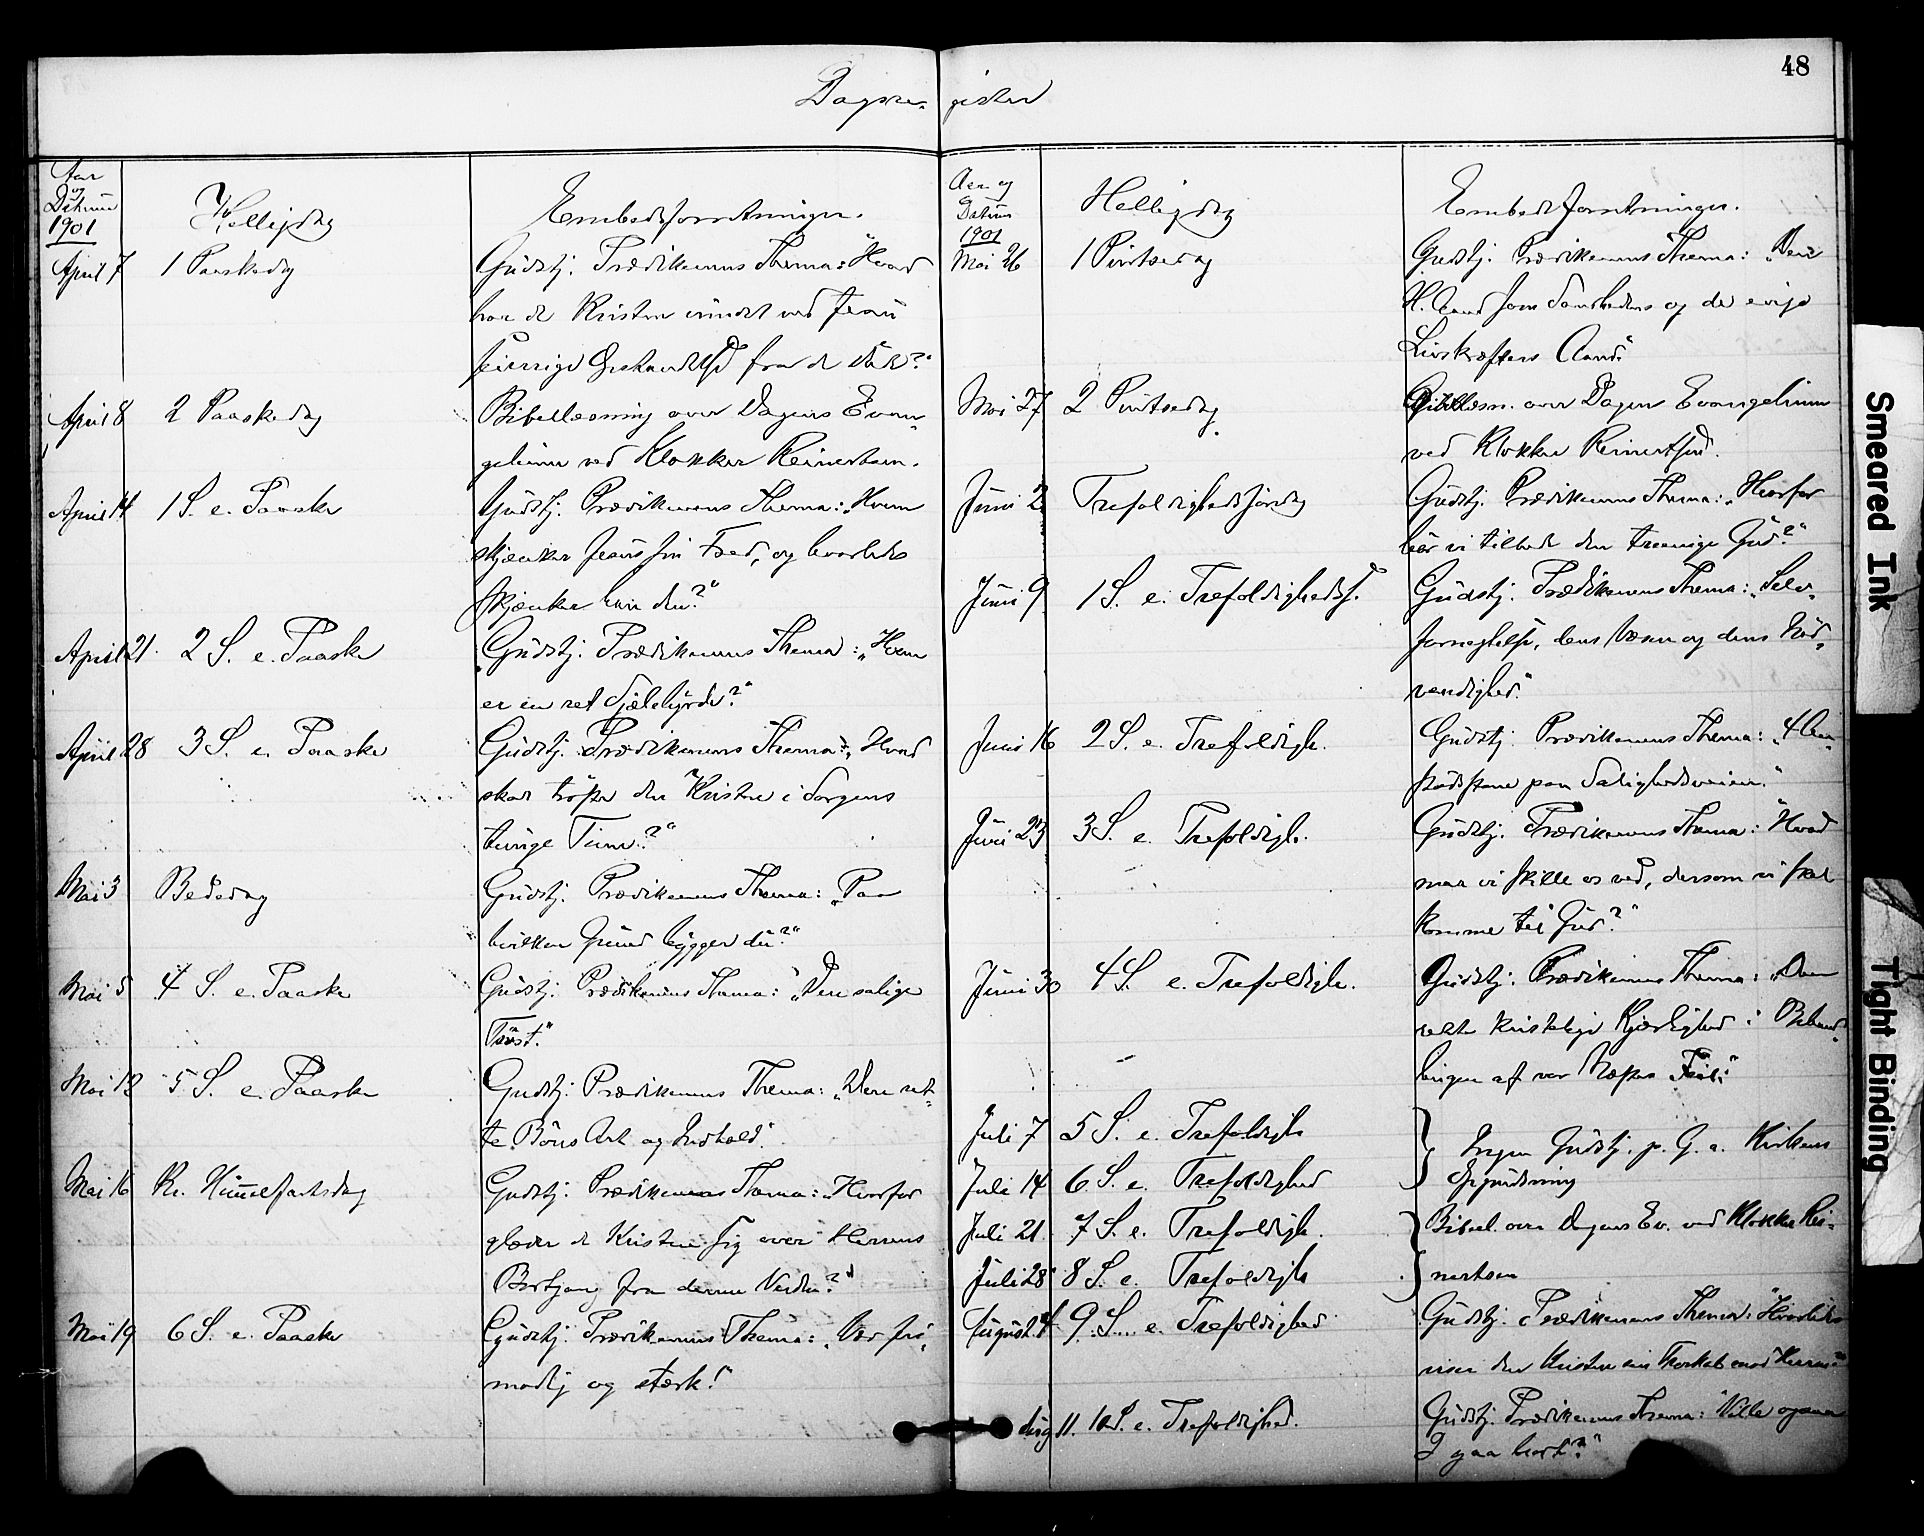 48
Dagsre- gister
Aar
og
Datum
1901
Helligdag
Embedsforretninger.
April 7 1 Paaskedag Gudstj. Prædikenens Thema: "Hvad
har de Kristne vundet ved Jesu
seierrige Opstandelse fra de Døde?"
April 8 2 Paaskedag Bibellæsning over Dagens Evan-
gelium ved Klokker Reinertsen.
April 14 1 S. e. Paaske Gudstj. Prædikenens Thema: "Hvem
skjænker Jesus sin Fred, og hvorledes
skjænker han den?"
April 21. 2 S. e. Paaske Gudstj. Prædikenens Thema: "Hvem
er en ret Sjælehyrde?"
April 28 3 S. e. Paaske Gudstj. Prædikenens Thema: "Hvad
skal trøste den Kristne i Sorgens
tunge Time?"
Mai 3 Bededag Gudstj. Prædikenens Thema: "Paa
hvilken Grund bygger du?"
Mai 5 4 S. e. Paaske Gudstj. Prædikenens Thema: "Den salige
Trøst."
Mai 12 5 S. e. Paaske Gudstj. Prædikenens Thema: "Den ret-
te Bøns Art og Indhold."
Mai 16 Kr. Himmelfartsdag Gudstj. Prædikenens Thema: "Hvorfor
glæder de Kristne sig over Herrens
Bortgang fra denne Verden?"
Mai 19 6 S. e. Paaske Gudstj. Prædikenens Thema: "Vær fri-
modig og stærk!"
Aar og
Datum
1901
Helligdag
Embedsforretninger.
Mai 26 1 Pintsedag Gudstj. Prædikenens Thema: "Den
H. Aand som Sandhedens og de evige
Livskræfters Aand."
Mai 27 2 Pintsedag. Bibellæsn. over Dagens Evangelium
ved Klokker Reinertsen.
Juni 2 Trefoldighedssøndag Gudstj. Prædikenens Thema: "Hvorfor
bør vi tilbede den treenige Gud?"
Juni 9 1 S. e. Trefoldighedsf. Gudstj. Prædikenens Thema: "Selv-
fornegtelse, dens Væsen og dens Nød-
vendighed."
Juni 16 2 S. e. Trefoldigh. Gudstj. Prædikenens Thema: "4 An-
stødsstene paa Salighedsveien."
Juni 23 3 S. e. Trefoldigh. Gudstj. Prædikenens Thema: "Hvad
maa vi skille os ved, dersom vi skal
komme til Gud?"
Juni 30 4 S. e. Trefoldigh. Gudstj. Prædikenens Thema: "Den
rette kristelige Kjærlighed i Behand-
lingen af vor Næstes Feil."
Juli 7 5 S. e. Trefoldigh Ingen Gudstj. p. G. a. Kirkens
Juli 14 6 S. e. Trefoldighed Oppudsning
Juli 21. 7 S. e. Trefoldigh. Bibell. over Dagens Ev. ved Klokker Rei-
Juli 28 8 S. e. Trefoldigh nertsen
August 4 9 S. e. Trefoldighed Gudstj. Prædikenens Thema: "Hvorledes
viser den Kristne sin Troskab mod Herren?"
Aug 11. 10 S. e. Trefoldighed. Gudstj. Prædikenens Thema: "Ville ogsaa
I gaa bort?"
Smeared Ink
Tight Binding